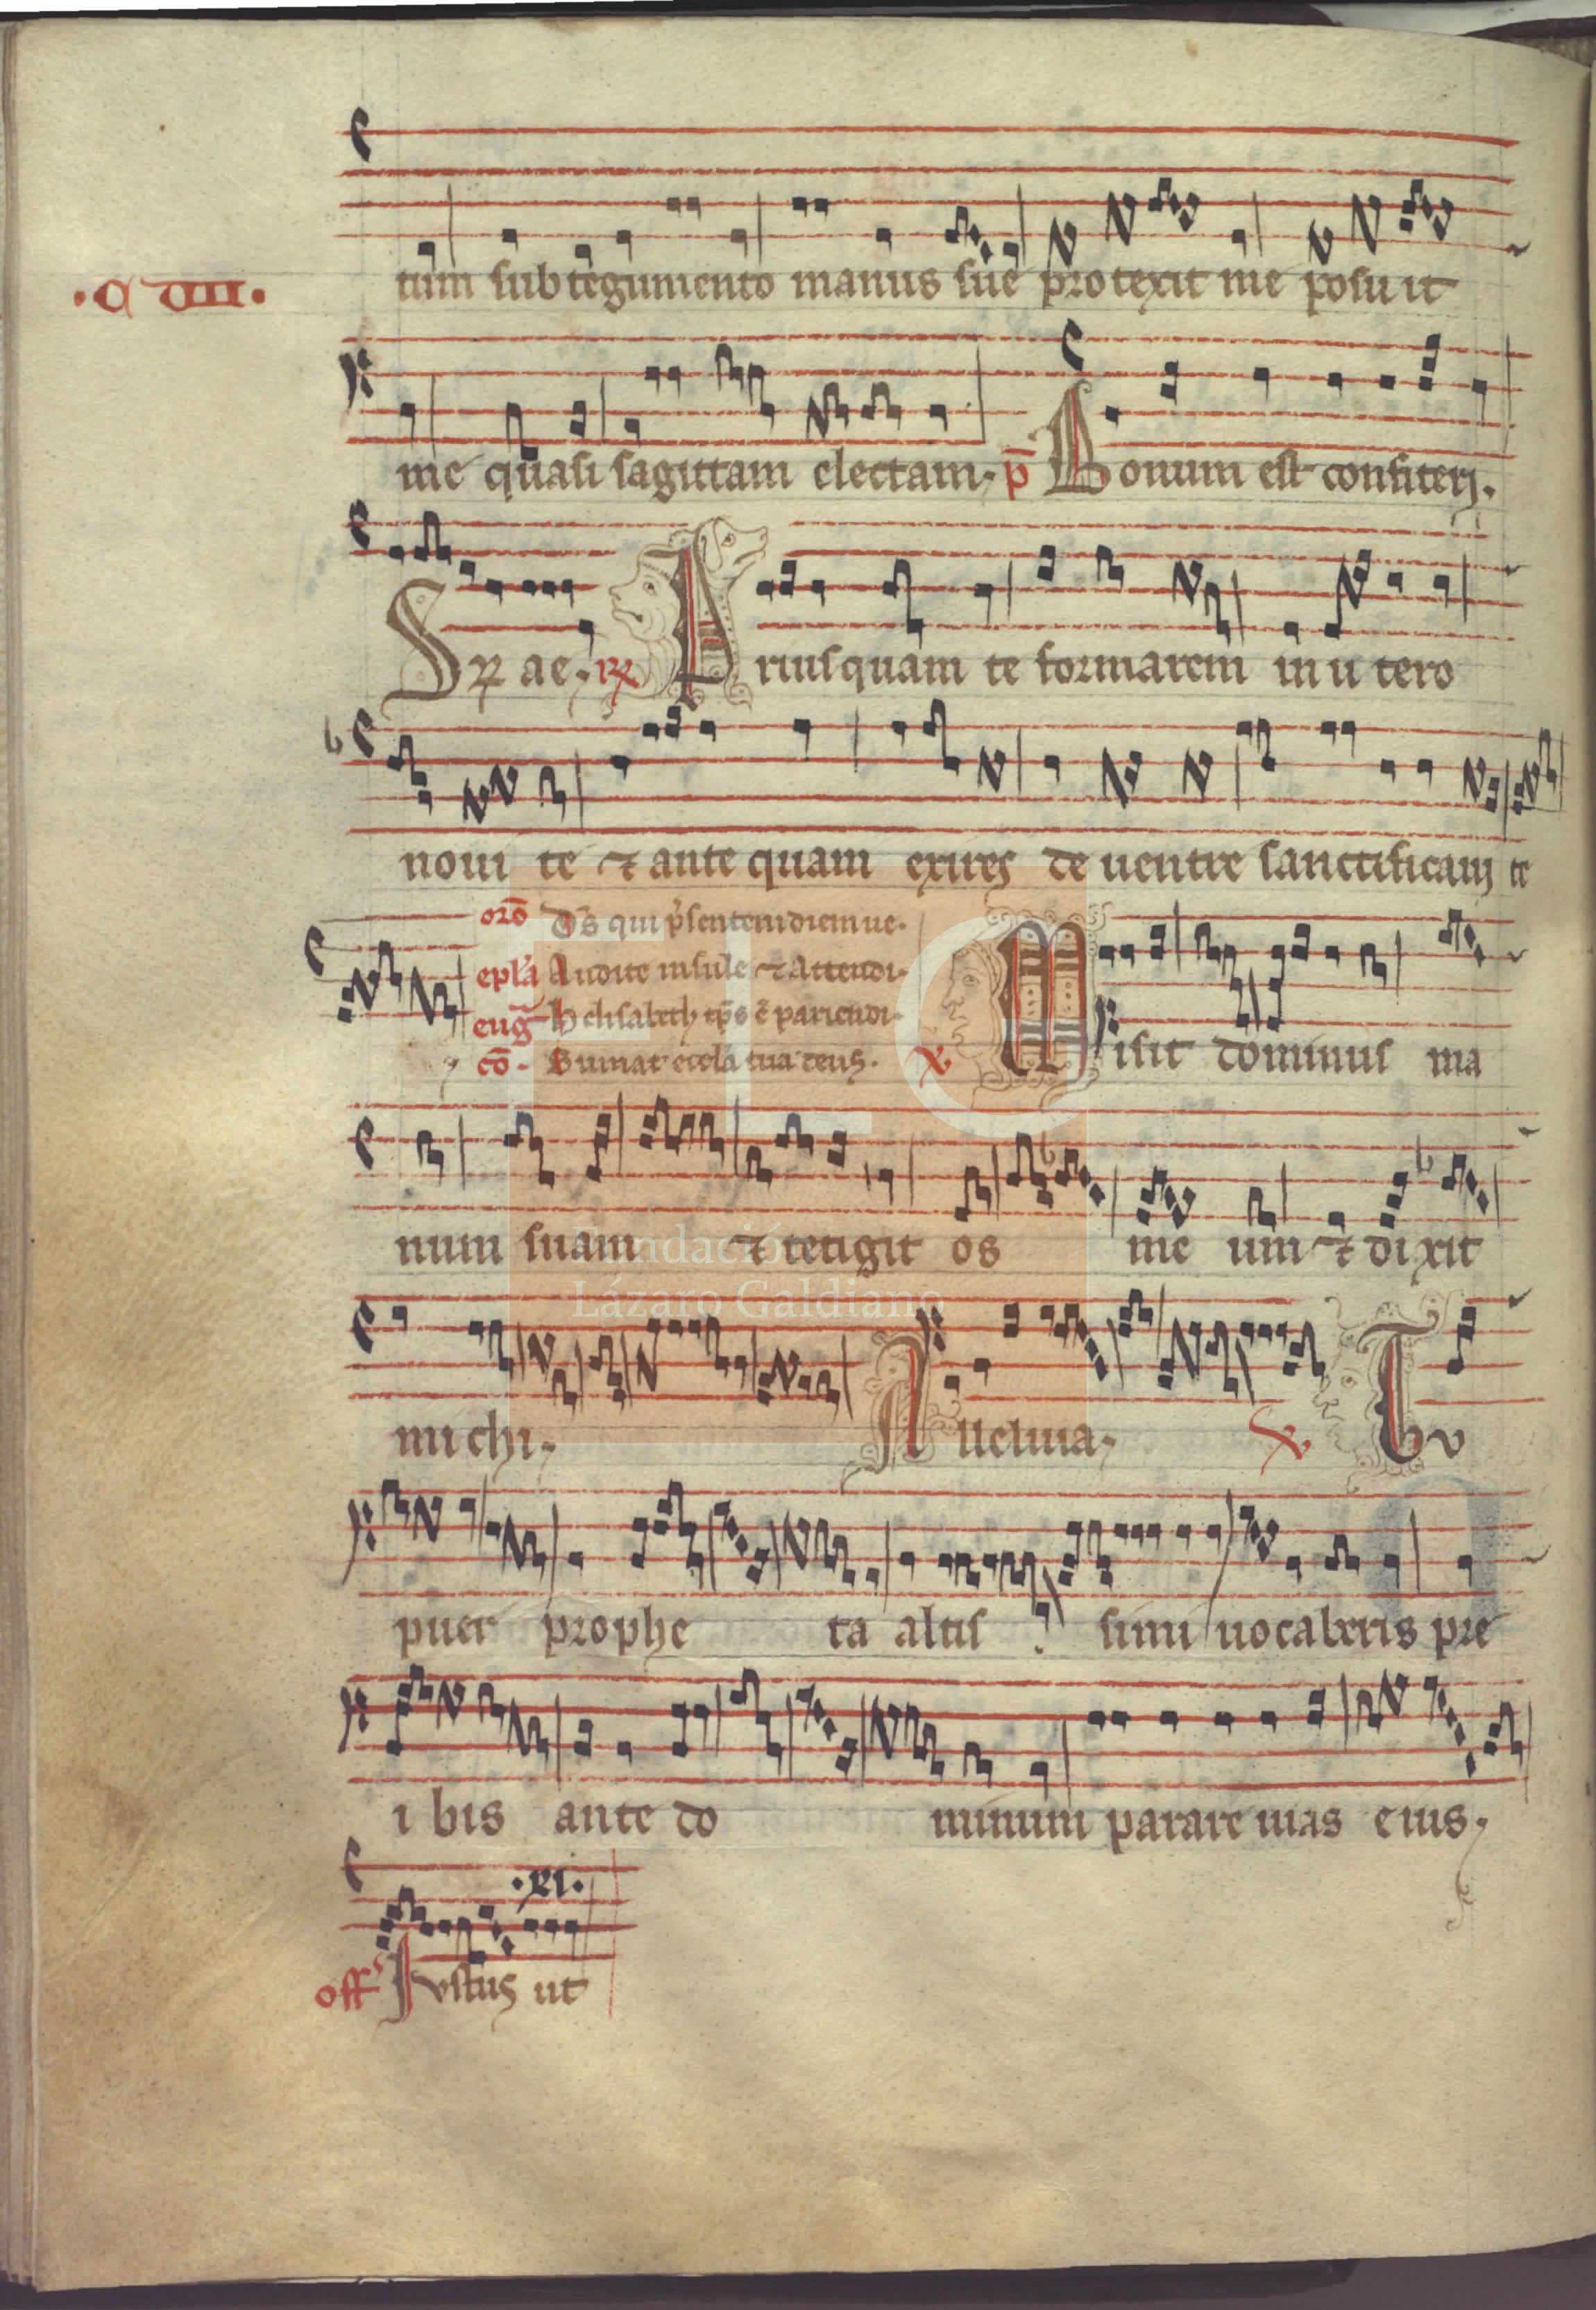 .C VIII.
tum sub tegumento manus sue protexit me posu it
me quasi sagittam electam. p̄ Bonum est confiterj.
Spr ae. Rx Priusquam te formarem in u tero
noui te ⁊ ante quam exires de uentre sanctificaui te
oro᷑ Ds̄ qui p̄sentem diem ue.
epl̄a Audite insule ⁊ attendi.
euḡ Helisabeth tp̄s ē pariendi.
cō. Sumat eccl̄a tua deus. V Misit dominus ma
num suam ⁊ tetigit os me um ⁊ di xit
mi chi. Alleluia. V Tu
puer prophe ta altis simi uocaberis pre
i bis ante do minum parare uias eius.
.XI.
off Iustus ut
FLG
Fundación
Lázaro Galdiano